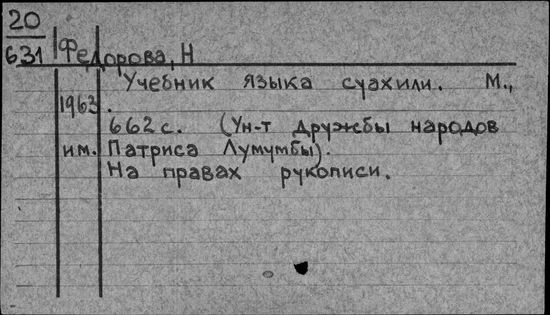 20
631 Федорова, Н
Учебник языка суахили. М.,
1963.
662 с. (Ун-т дружбы народов
им. Патриса Лумумбы).
На правах рукописи.